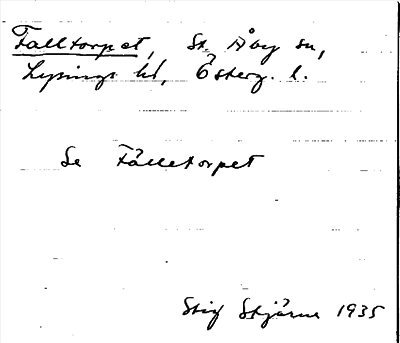 Falltorpet, St. Åby sn,
Lysings hd, Österg. l.
Se Fälletorpet
Stig Stjärne 1935